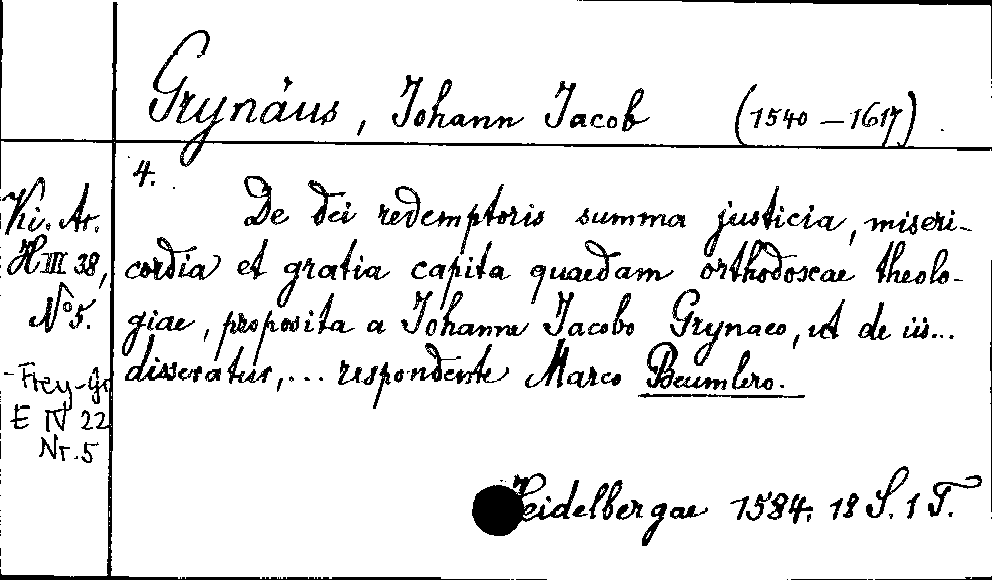 Grynäus, Johann Jacob (1540–1617).
4.
Ki. Ar.
H III 38,
No 5.
Frey-Gr
E IV 22
Nr. 5
De dei redemptoris summa justicia, miseri-
cordia et gratia capita quaedam orthodoxae theolo-
giae, proposita a Johanne Jacobo Grynaeo, ut de iis...
disseratur,... respondente Marco Beumlero.
Heidelbergae 1584. 18 S. 1 T.